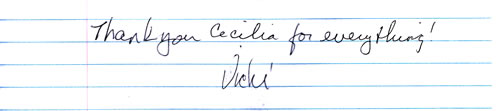 Thank you Cecilia for everything!
Vicki